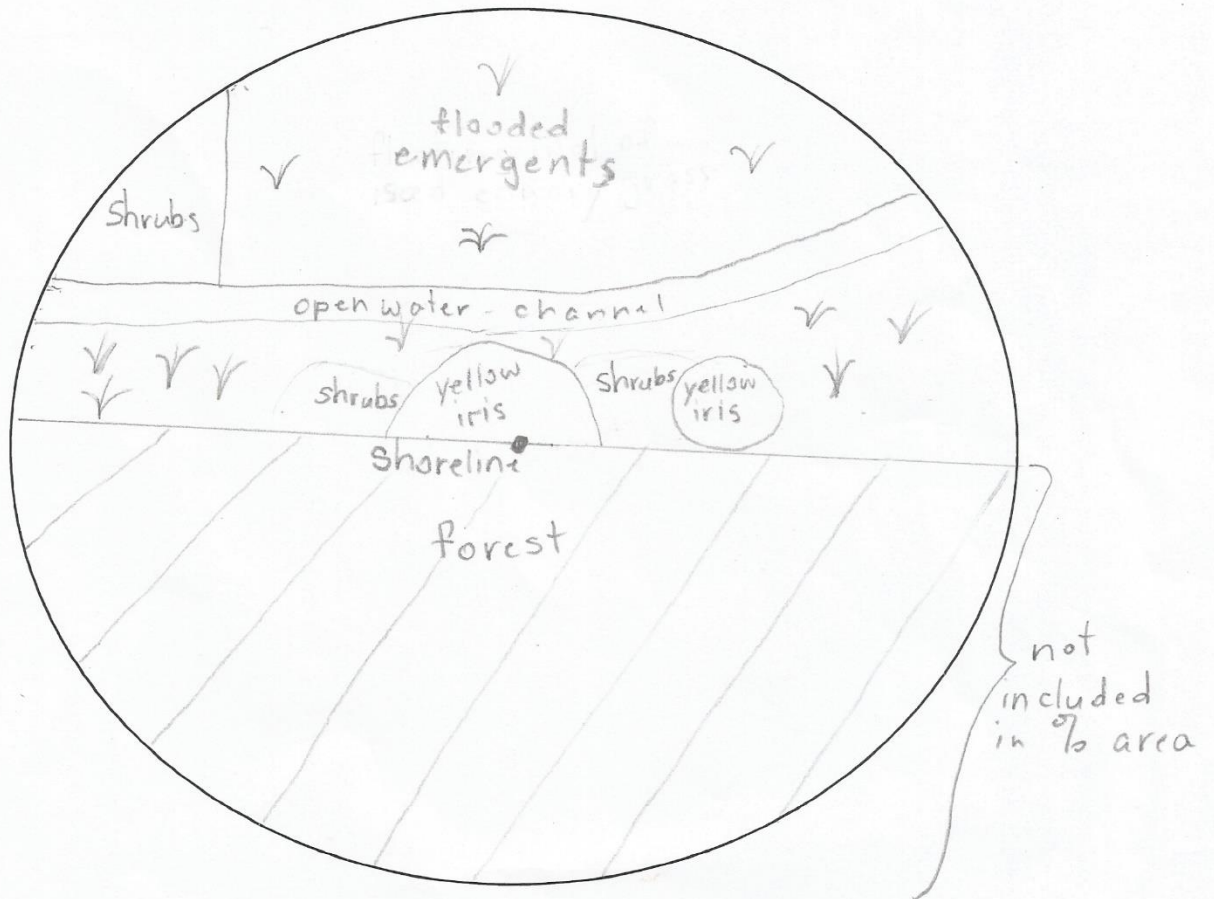 flooded
emergents
Shrubs
open water - channel
shrubs
yellow
iris
shrubs
yellow
iris
Shoreline
forest
not
included
in % area